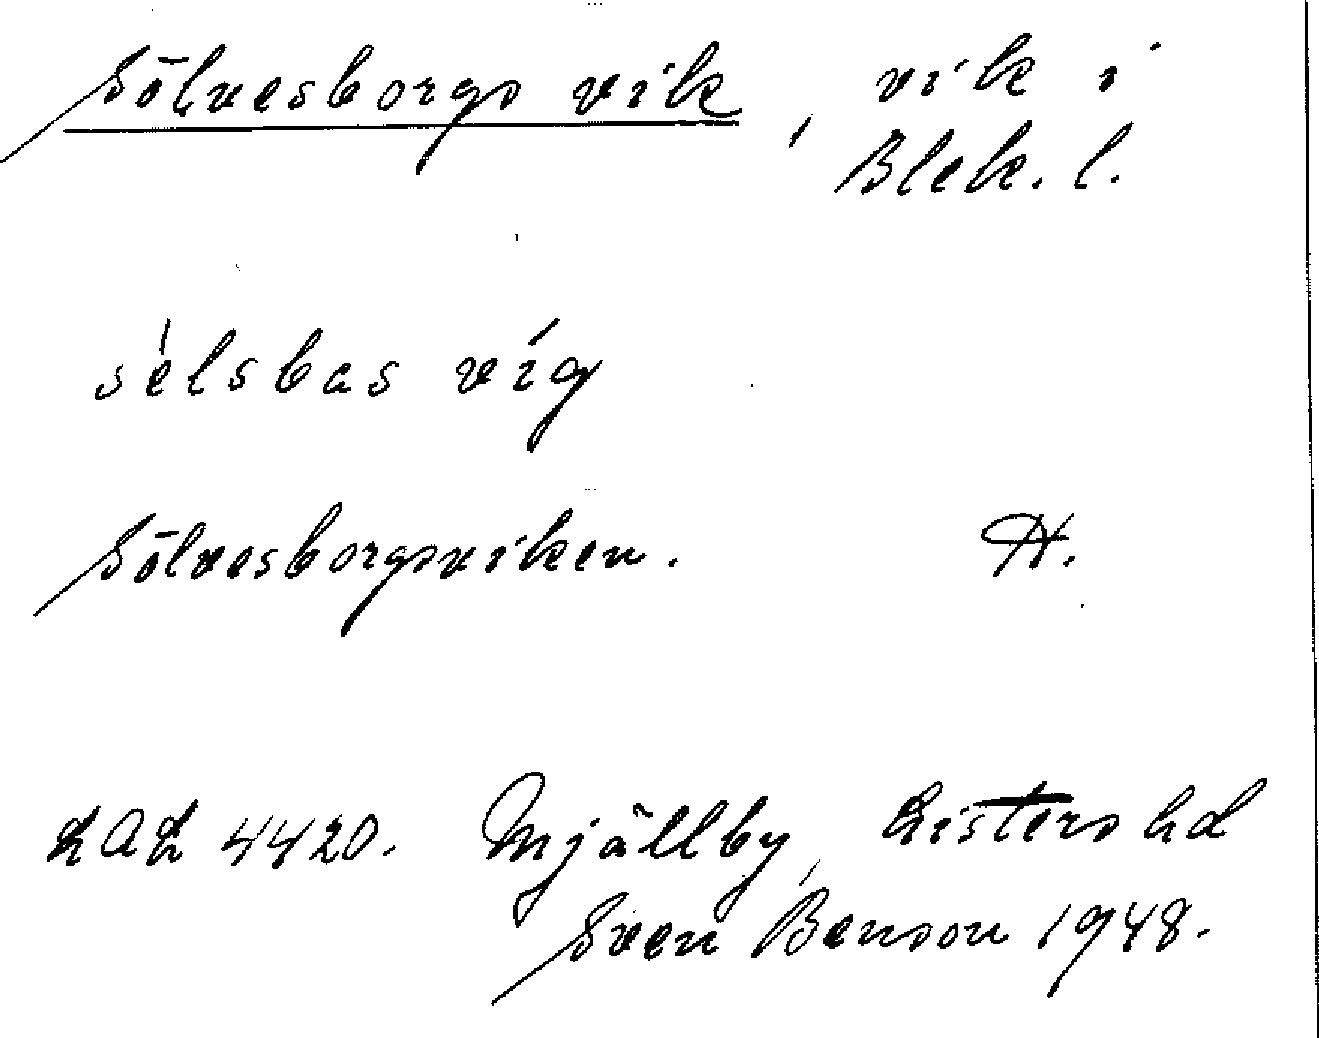 Sölvesborgs vik, vik i
Blek. l.
sélsbas víg
Sölvesborgsviken. H.
LAL 4420. Mjällby, Listers hd
Sven Benson 1948.